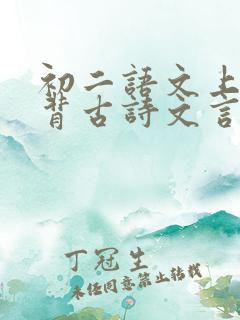 初二語文上
背古詩文言
丁冠生
未任同意禁止转载